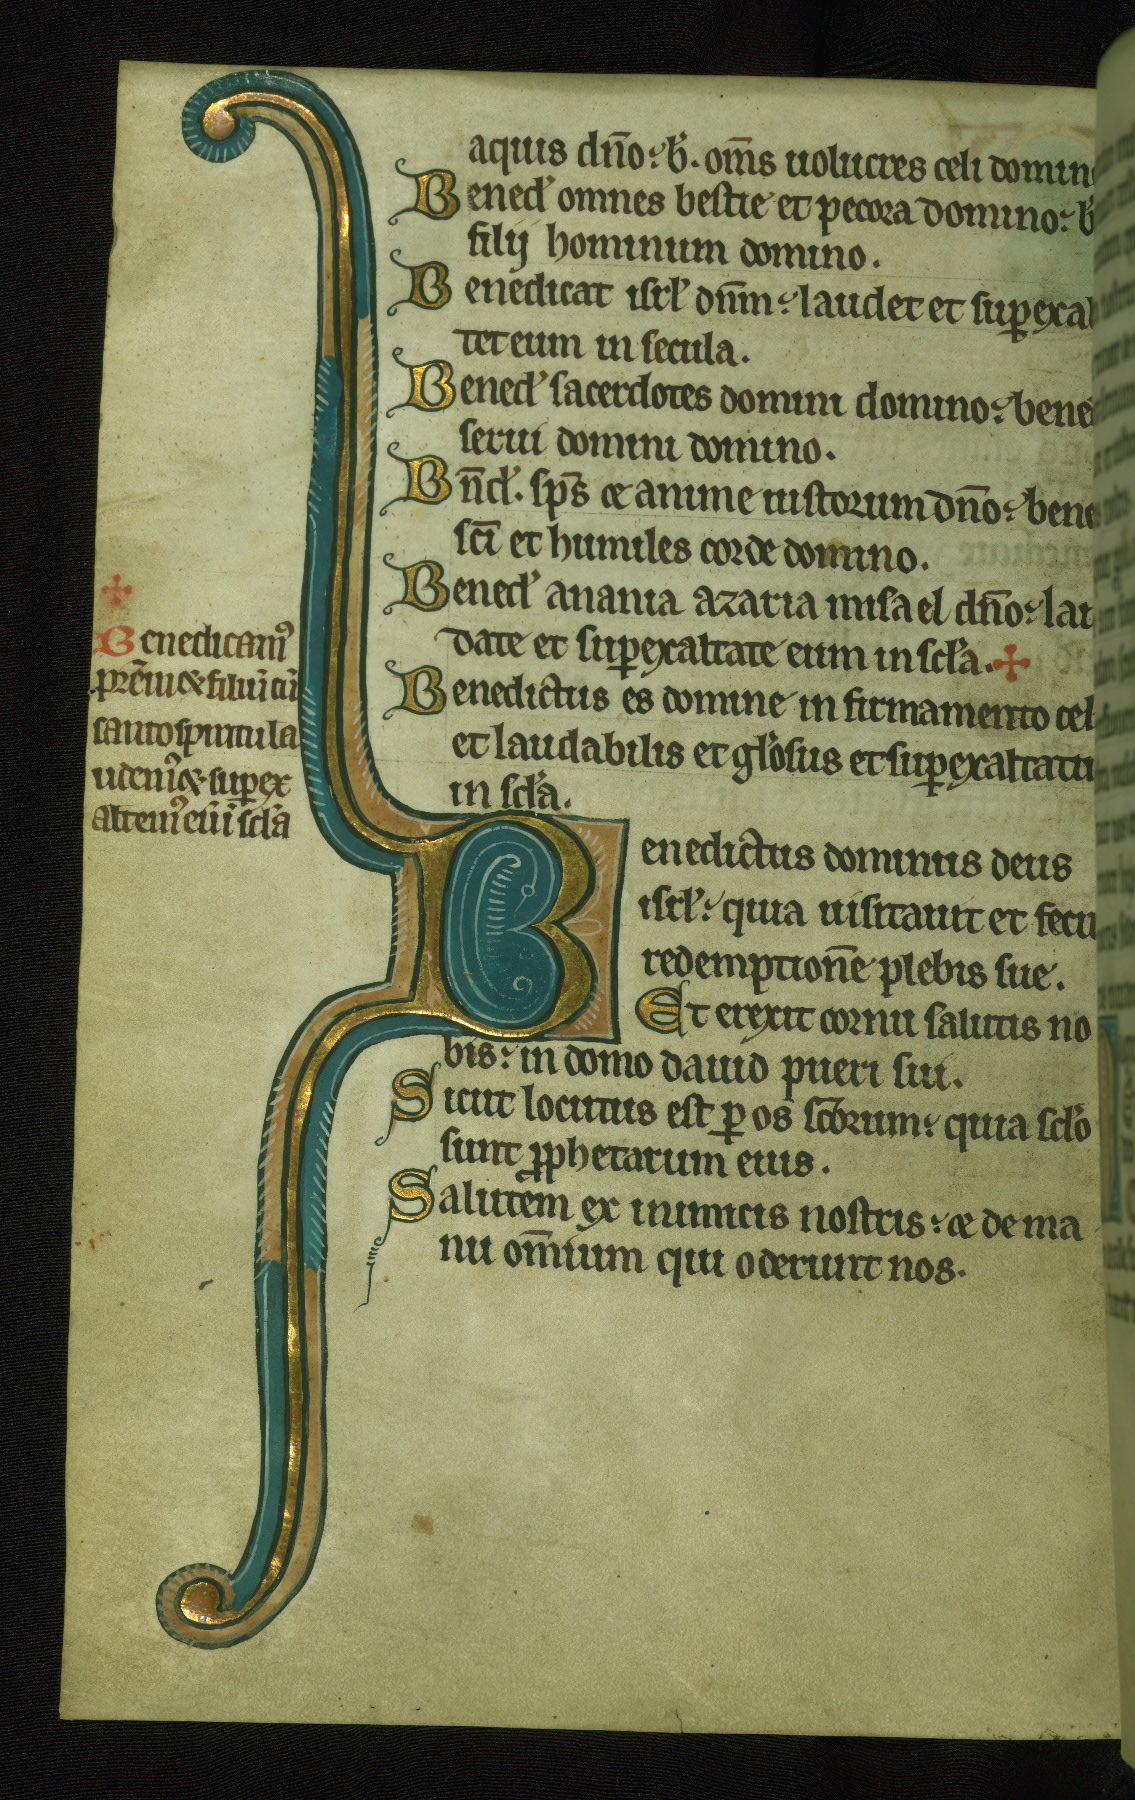 aquis dn̄o: b̄. om̄s uolucres celi domin
Bened̕ omnes bestie et pecora domino: b̄
filij hominum domino.
Benedicat isrl̕ dn̄m: laudet et sup̱exal
tet eum in secula.
Bened̕ sacerdotes domini domino: bene
serui domini domino.
Bn̄d̕. sp̄s et anime iustorum dn̄o: bene
sc̄i et humiles corde domino.
Bened̕ anania azaria misael dn̄o: lau
date et sup̱exaltate eum in scl̕a. ✠
Benedictus es domine in firmamento cel
et laudabilis et gl̕osus et sup̱exaltatu
in scl̕a.
✠
Benedicam᷒
pr̄em &filiū cū
sancto spiritu la
udem᷒ & sup̱ex
altem᷒ eū ī scl̕a
Benedictus dominus deus
isrl̕: quia uisitauit et feci
redemption̄e plebis sue.
Et erexit cornu salutis no
bis: in domo dauid pueri sui.
Sicut locutus est p̱ os sc̄orum: quia scl̕o
sunt p̱phetarum eius.
Salutem ex inimicis nostris: et de ma
nu om̄ium qui oderunt nos.